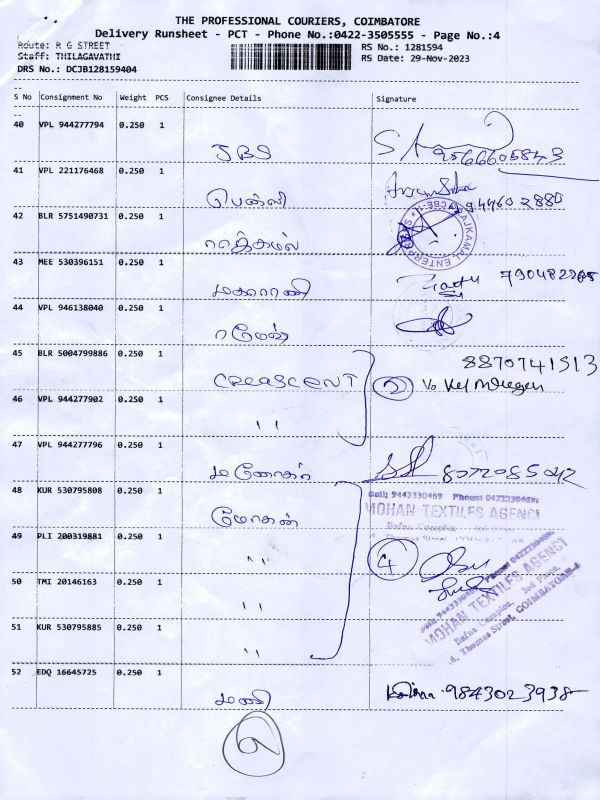 THE PROFESSIONAL COURIERS, COIMBATORE
Delivery Runsheet - PCT - Phone No.:0422-3505555 - Page No.:4
Route: R G STREET
RS No.: 1281594
Staff: THILAGAVATHI
RS Date: 29-Nov-2023
DRS No.: DCJB128159404
S No Consignment No Weight PCS Consignee Details Signature
40 VPL 944277794 0.250 1
JBS 9566605843
41 VPL 221176468 0.250 1
பென்லி
42 BLR 5751490731 0.250 1
43 MEE 530396151 0.250 1
மகாராணி
44 VPL 946138040 0.250 1
ரமேஷ்
45 BLR 5004799886 0.250 1
8870741513
CREASCENT 2
46 VPL 944277902 0.250 1
"
47 VPL 944277796 0.250 1
மனோகர் 8072085042
48 KUR 530795808 0.250 1
Cell: 9443330469
மோகன்
MOHAN TEXTILES AGENCY
49 PLI 200319881 0.250 1
" 4
50 TMI 20146163 0.250 1
"
MOHAN TEXTILES AGENCY
51 KUR 530795885 0.250 1
St. Thomas Street, COIMBATORE
"
52 EDQ 16645725 0.250 1
மணி 9843023938